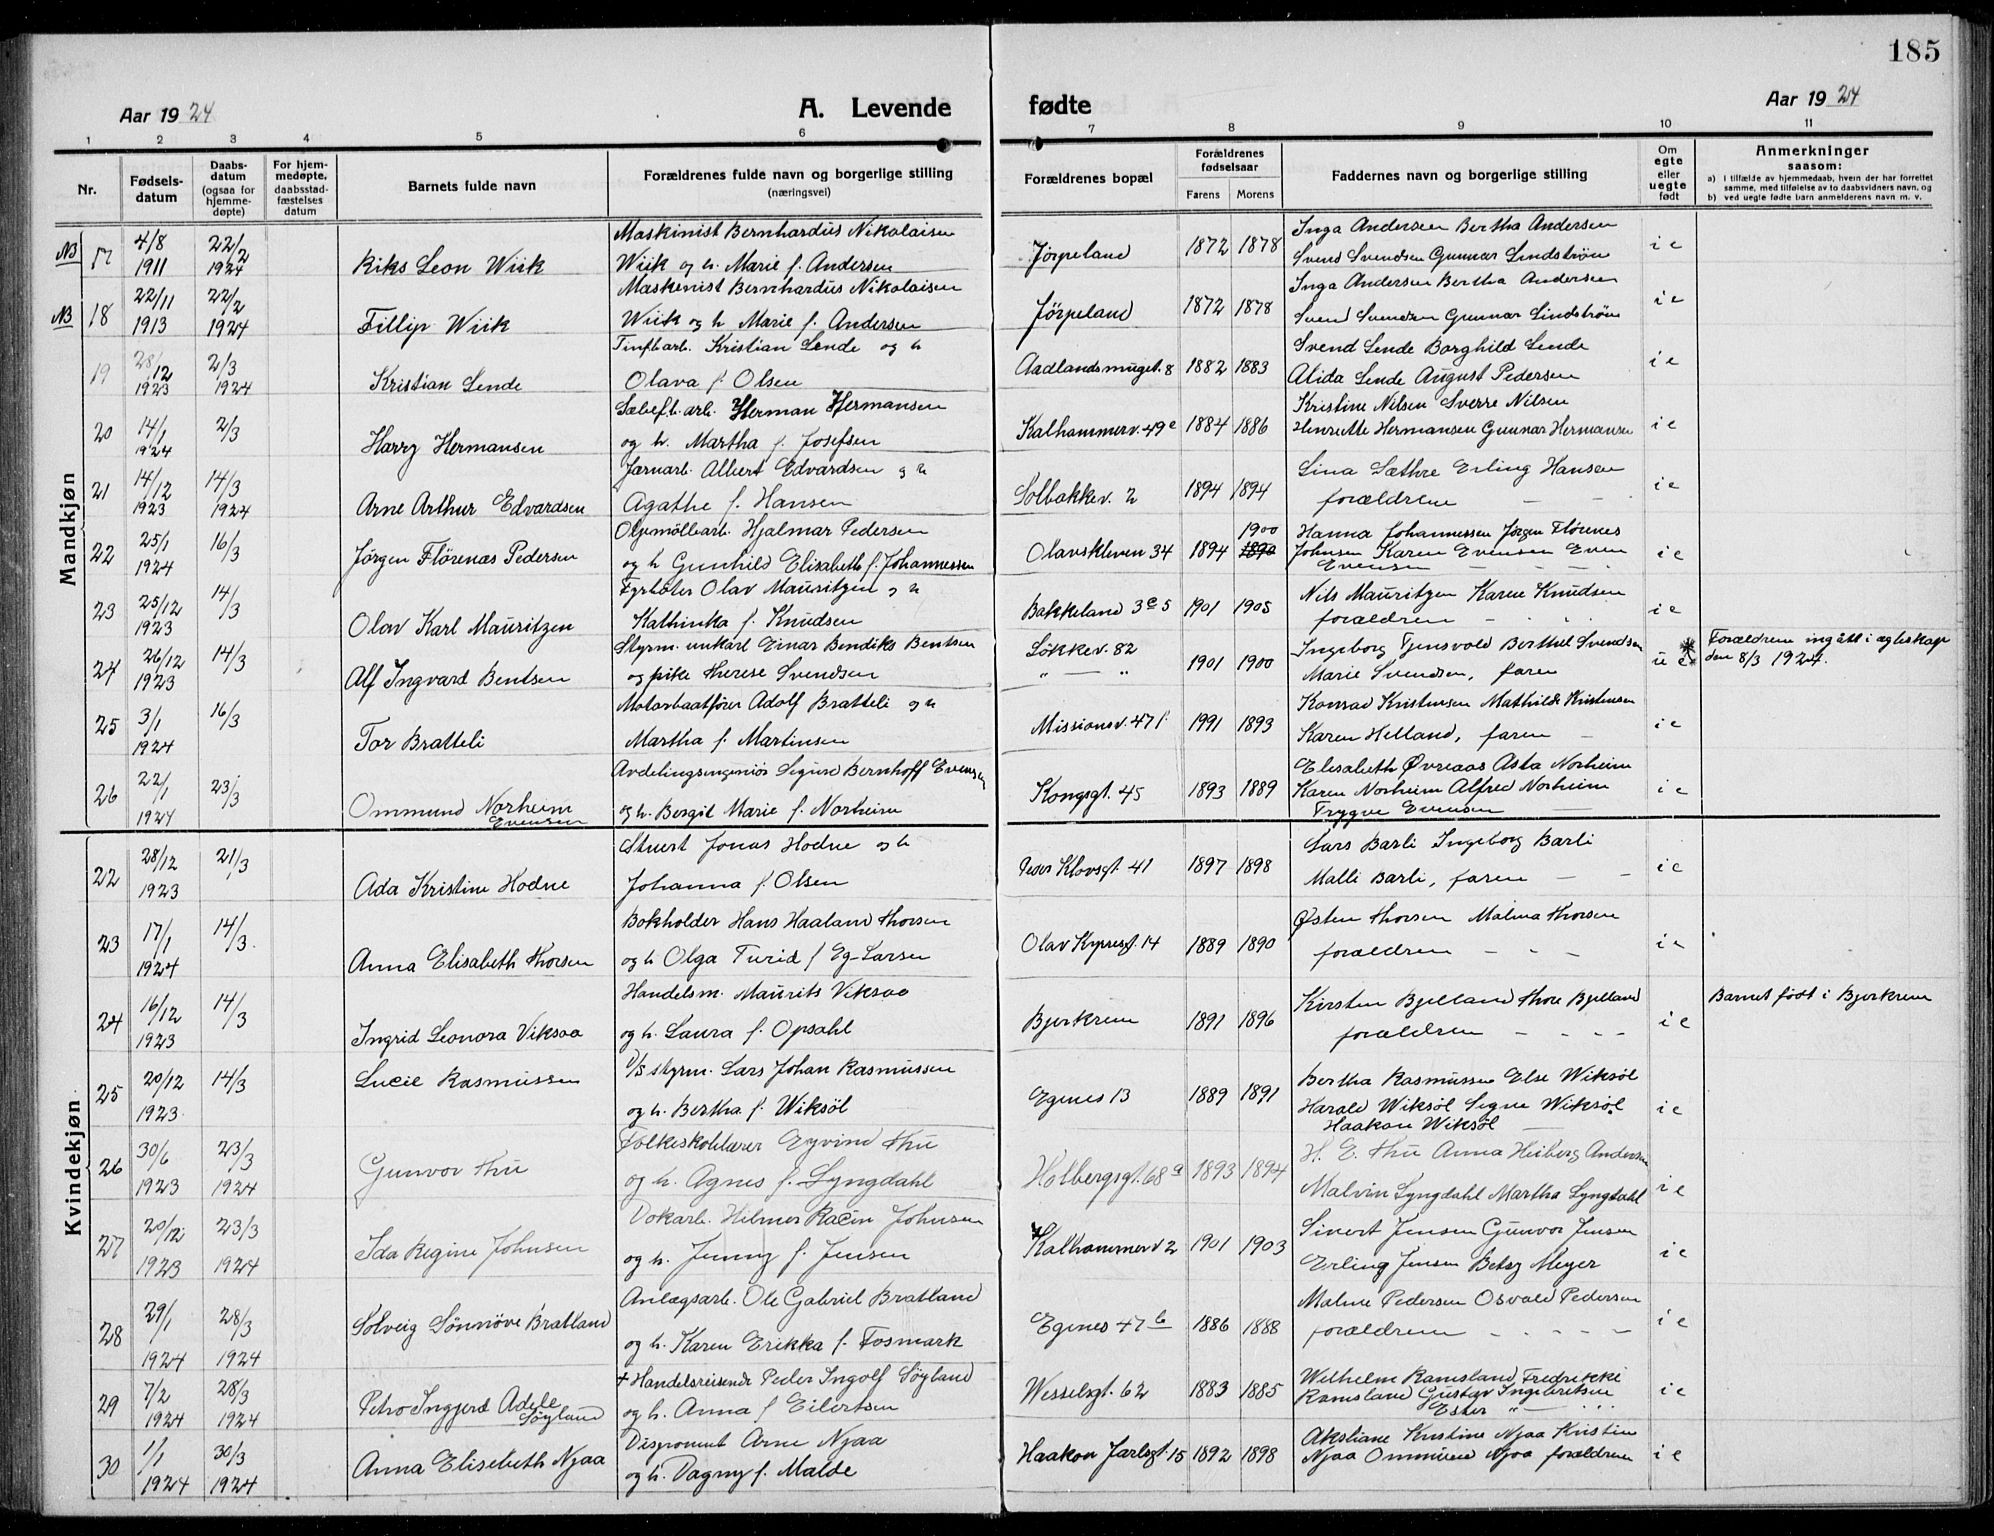 185
Aar 1924 A. Levende fødte Aar 1924
1 2 3 4 5 6 7 8 9 10 11
Nr. Fødsels-datum Daabs-datum (ogsaa for hjemme-døpte) For hjem-medøpte. daabsstad-fæstelses datum Barnets fulde navn Forældrenes fulde navn og borgerlige stilling (næringsvei) Forældrenes bopæl Forældrenes fødselsaar Farens Morens Faddernes navn og borgerlige stilling Om egte eller uegte født Anmerkninger saasom:
a) i tilfælde av hjemmedaab, hvem der har forrettet samme, med tilføielse av to daabsvidners navn, og
b) ved uegte fødte barn anmelderens navn m. v.
Mandkjøn
NB 17 4/8 1911 22/2 1924 Riks Leon Wiik Maskinist Bernhardus Nikolaisen Wiik og h. Marie f. Andersen Jørpeland 1872 1878 Inga Andersen Bertha Andersen Svend Svendsen Gunnar Lindstrøm i e
NB 18 22/11 1913 22/2 1924 Fillip Wiik Maskenist Bernhardus Nikolaisen Wiik og h Marie f. Andersen Jørpeland 1872 1878 Inga Andersen Bertha Andersen Svend Svendsen Gunnar Lindstrøm i e
19 28/12 1923 2/3 1924 Kristian Lende Kristian Lende og h Olava f. Olsen Aadlandsmuget. 8 1882 1883 Svend Lende Borghild Lende Alida Lende August Pedersen i e
20 14/1 1924 2/3 Harry Hermansen Sæbef.b. arb. Herman Hermansen og h. Martha f. Josefsen Kalhammerv. 49c 1884 1886 Kristine Nilsen Sverre Nilsen Henriette Hermansen Gunnar Hermansen i e
21 14/12 1923 14/3 1924 Arne Arthur Edvardsen Jærnarb. Albert Edvardsen og h Agathe f. Hansen Solbakkev. 2 1894 1894 Lina Sæthre Erling Hansen forældrene i e
22 25/1 1924 16/3 Jørgen Flørenæs Pedersen Oljemøllearb. Hjalmar Pedersen og h Gunhild Elisabeth f. Johannessen Olavskleven 34 1894 1900 1890 Hanna Johannessen Jørgen Flørenes Johnsen Karen Evensen Even Evensen i e
23 25/12 1923 14/3 Olav Karl Mauritzen Fyrbøter Olav Mauritzen og h Kathinka f. Knudsen Bakkeland 3c 5 1901 1905 Nils Mauritzen Karen Knudsen forældren i e
24 26/12 1923 14/3 Alf Ingvard Bentsen Styrm. unkarl Einar Bendiks Bentsen og pike Therese Svendsen Løkkev. 82 " — " 1901 1900 Ingeborg Tjensvold Berthel Svendsen Marie Svendsen, faren u e Forældrene ingått i ægteskap den 8/3 1924.
25 3/1 1924 16/3 Tor Bratteli Motorbaatfører Adolf Bratteli og h Martha f. Martinsen Missionsv. 47 f. 1991 1893 Konrad Kristensen Mathilde Kristensen Karen Helland, faren i e
26 22/1 1924 23/3 Ommund Norheim Evensen Avdelingsingeniør Sigurd Bernhoff Evensen og h. Bergit Marie f. Norheim Kongsgt. 45 1893 1889 Elisabeth Øvreaas Asta Norheim Karen Norheim Alfred Norheim Trygve Evensen i e
Kvindekjøn
22 28/12 1923 21/3 Ada Kristine Hodne Stuert Jonas Hodne og h Johanna f. Olsen Peder Klovsgt. 41 1897 1898 Lars Barli Ingeborg Barli Malli Barli, faren i e
23 17/1 1924 14/3 Anna Elisabeth Thorsen Bokholder Hans Haaland Thorsen og h Olga Turid f Eg-Larsen Olav Kyrresgt. 14 1889 1890 Østen Thorsen Malina Thorsen forældren i e
24 16/12 1923 14/3 Ingrid Leonora Viksaa Handelsm. Maurits Viksaa og h. Laura f. Opsahl Bjerkrem 1891 1896 Kirsten Bjelland Thore Bjelland forældren i e Barnet født i Bjerkrem
25 20/12 1923 14/3 Lucie Rasmussen D/S styrm. Lars Johan Rasmussen og h. Bertha f. Wiksøl Egenes 13 1889 1891 Bertha Rasmussen Else Wiksøl Harald Wiksøl Signe Wiksøl Haakon Wiksøl i e
26 30/6 1923 23/3 1924 Gunvor Thu Folkeskolelærer Eyvind Thu og h. Agnes f. Lyngdahl Holbergsgt. 68a 1893 1894 H. E. Thu Anna Heiberg Andersen Malvin Lyngdahl Martha Lyngdahl i e
27 20/12 1923 23/3 1924 Ida Regine Johnsen Dokarb. Hilmer Racin Johnsen og h. Jenny f. Jensen Kalhammerv 2 1901 1903 Sivert Jensen Gunvor Jensen Erling Jensen Betzy Meyer i e
28 29/1 1924 28/3 1924 Solveig Sønnøve Bratland Anlægsarb. Ole Gabriel Bratland og h. Karen Erikka f. Fosmark Egenes 47 b 1886 1888 Malene Pedersen Osvald Pedersen forældrene i e
29 7/2 1924 28/3 1924 Petro Ingjerd Adele Søyland + Handelsreisende Peder Ingolf Søyland og h. Anna f Eilertsen Wesselsgt. 62 1883 1885 Wilhelm Ramsland Fredrikke Ramsland Gustav Ingebretsen Ester " — " i e
30 1/1 1924 30/3 1924 Anna Elisebeth Njaa Disponent Arne Njaa og h. Dagny f. Malde Haakon Jarlsgt. 15 1892 1898 Aksliane Kristine Njaa Kristin Njaa Ommund Njaa forældrene i e